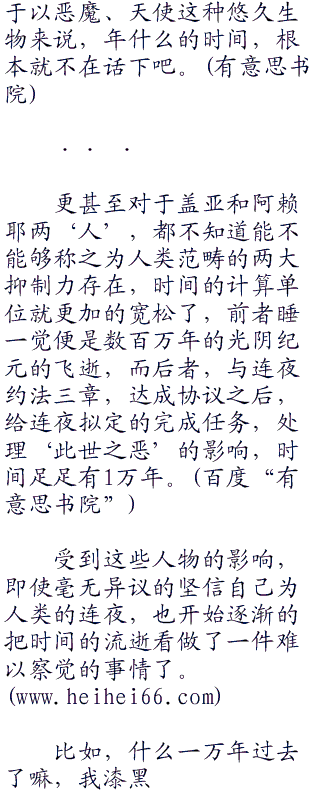 于以恶魔、天使这种悠久生
物来说，年什么的时间，根
本就不在话下吧。(有意思书
院)
． ．  ．
更甚至对于盖亚和阿赖
耶两‘人’，都不知道能不
能够称之为人类范畴的两大
抑制力存在，时间的计算单
位就更加的宽松了，前者睡
一觉便是数百万年的光阴纪
元的飞逝，而后者，与连夜
约法三章，达成协议之后，
给连夜拟定的完成任务，处
理‘此世之恶’的影响，时
间足足有1万年。(百度“有
意思书院”)
受到这些人物的影响，
即使毫无异议的坚信自己为
人类的连夜，也开始逐渐的
把时间的流逝看做了一件难
以察觉的事情了。
(www.heihei66.com)
比如，什么一万年过去
了嘛，我漆黑